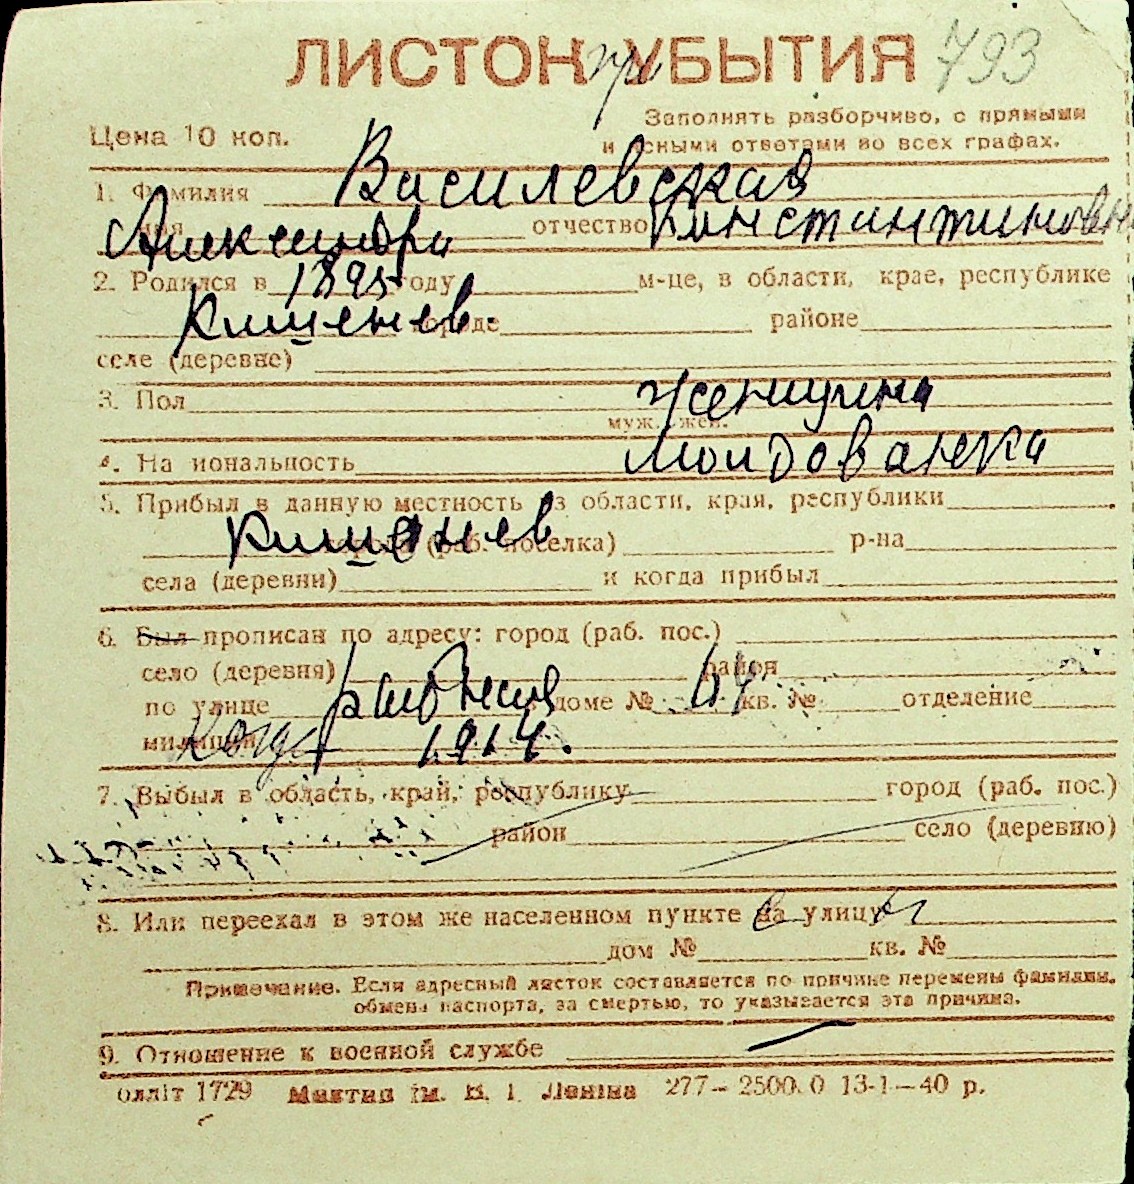 ЛИСТОК при УБЫТИЯ 793
Цена 10 коп.
Заполнять разборчиво, с прямыми
и ясными ответами во всех графах.
1. Фамилия Василевская
имя Александра отчество Константиновн
2. Родился в 1895 году м-це, в области, крае, республике
Кишенев. городе районе
селе (деревне)
3. Пол женщина
муж., жен.
4. Национальность Молдованка
5. Прибыл в данную местность из области, края, республики
Кишенев города (раб. поселка) р-на
села (деревни) и когда прибыл
6. Был прописан по адресу: город (раб. пос.)
село (деревня) район
по улице доме № 64 кв. № отделение
милиции Когда 1914.
7. Выбыл в область, край, республику город (раб. пос.)
район село (деревню)
8. Или переехал в этом же населенном пункте на улицу
дом № кв. №
Примечание. Если адресный листок составляется по причине перемены фамилии,
обмена паспорта, за смертью, то указывается эта причина.
9. Отношение к военной службе
олліт 1729 ім. В. І. Леніна 277—2500.0 13-1—40 р.